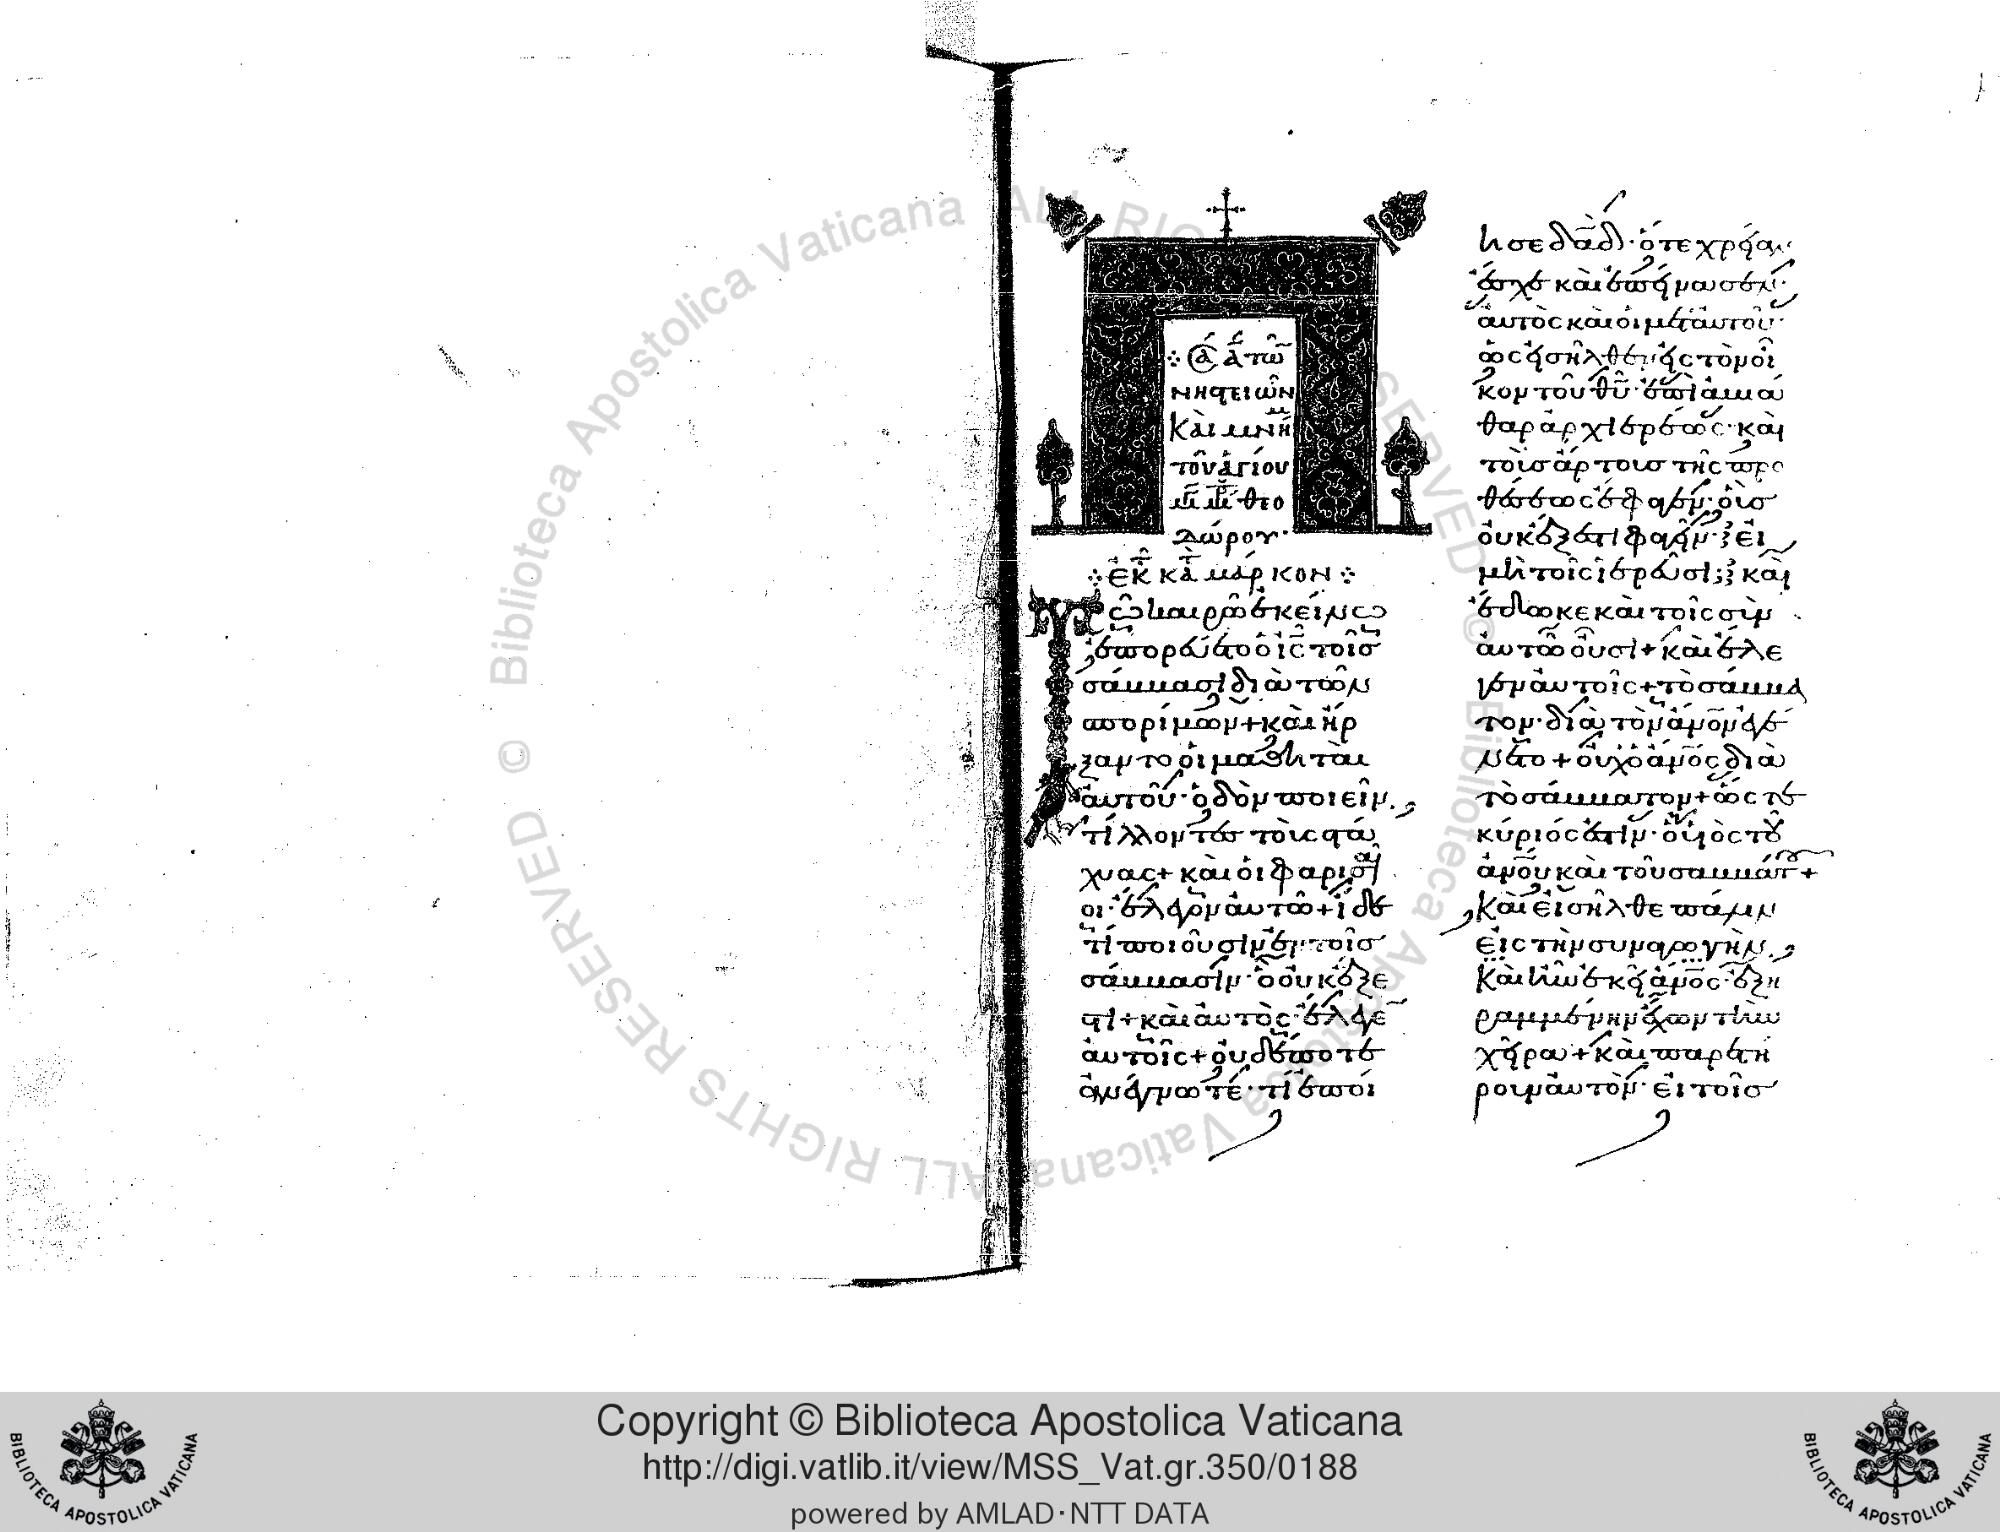 Σα α τω
νηστειῶν
Καὶ μνή
τοῦ ἁγίου
μγ μρ θεο
δώρου·
ἐκ κατ μάρκον
Τῶ καιρῶ ἐκείνω
ἐπορεύετο ὁ ις τοῖσ
σάββασι διὰ τῶν
σπορίμων + καὶ ἤρ
ξαντο οἱ μαθηταὶ
αὐτοῦ· ὁδὸν ποιεῖν,
τίλλοντεσ τοὺς στά
χυας + καὶ οἱ φαρισαῖ
οι· ἔλεγον αὐτῶ + ἴδε
τί ποιοῦσιν ἐν τοῖσ
σάββασιν· ὃ οὐκ ἔξε
στι + καὶ αὐτὸς· ἔλεγε
αὐτοῖς + οὐδέποτε
ἀνέγνωτε· τί ἐποί
ησε δαδ· ὅτε χρείαν
ἔσχε καὶ ἐπείνασεν·
αὐτὸς καὶ οἱ μετ αὐτοῦ·
πῶς εἰσῆλθεν εἰς τὸν οἶ
κον τοῦ θυ· ἐπὶ ἀβιά
θαρ ἀρχιερέως· καὶ
τοὺσ ἄρτουσ τῆς προ
θέσεως ἔφαγεν· οὓσ
οὐκ ἔξεστι φαγεῖν· εἰ
μὴ τοῖς ἱερεῦσι; καὶ
ἔδωκε καὶ τοῖς σὺν
αὐτῶ οὖσι + καὶ ἔλε
γεν αὐτοῖς + τὸ σάββα
τον· διὰ τὸν ανον ἐγέ
νετο + οὐχ ὁ ανος διὰ
τὸ σάββατον + ὥστε
κύριός ἐστιν· ὁ υἱὸς τοῦ
ανου καὶ τοῦ σαββάτου +
Καὶ εἰσῆλθε πάλιν
εἰς τὴν συναγωγὴν,
Καὶ ἦν ἐκεῖ ανος· ἐξη
ραμμένην ἔχων τὴν
χεῖρα + καὶ παρετή
ρουν αὐτὸν· εἰ τοῖσ
© Biblioteca Apostolica Vaticana ALL RIGHTS RESERVED © Biblioteca Apostolica Vaticana ALL RIGHTS RESERVED
Copyright © Biblioteca Apostolica Vaticana
http://digi.vatlib.it/view/MSS_Vat.gr.350/0188
powered by AMLAD·NTT DATA
BIBLIOTECA APOSTOLICA VATICANA
BIBLIOTECA APOSTOLICA VATICANA